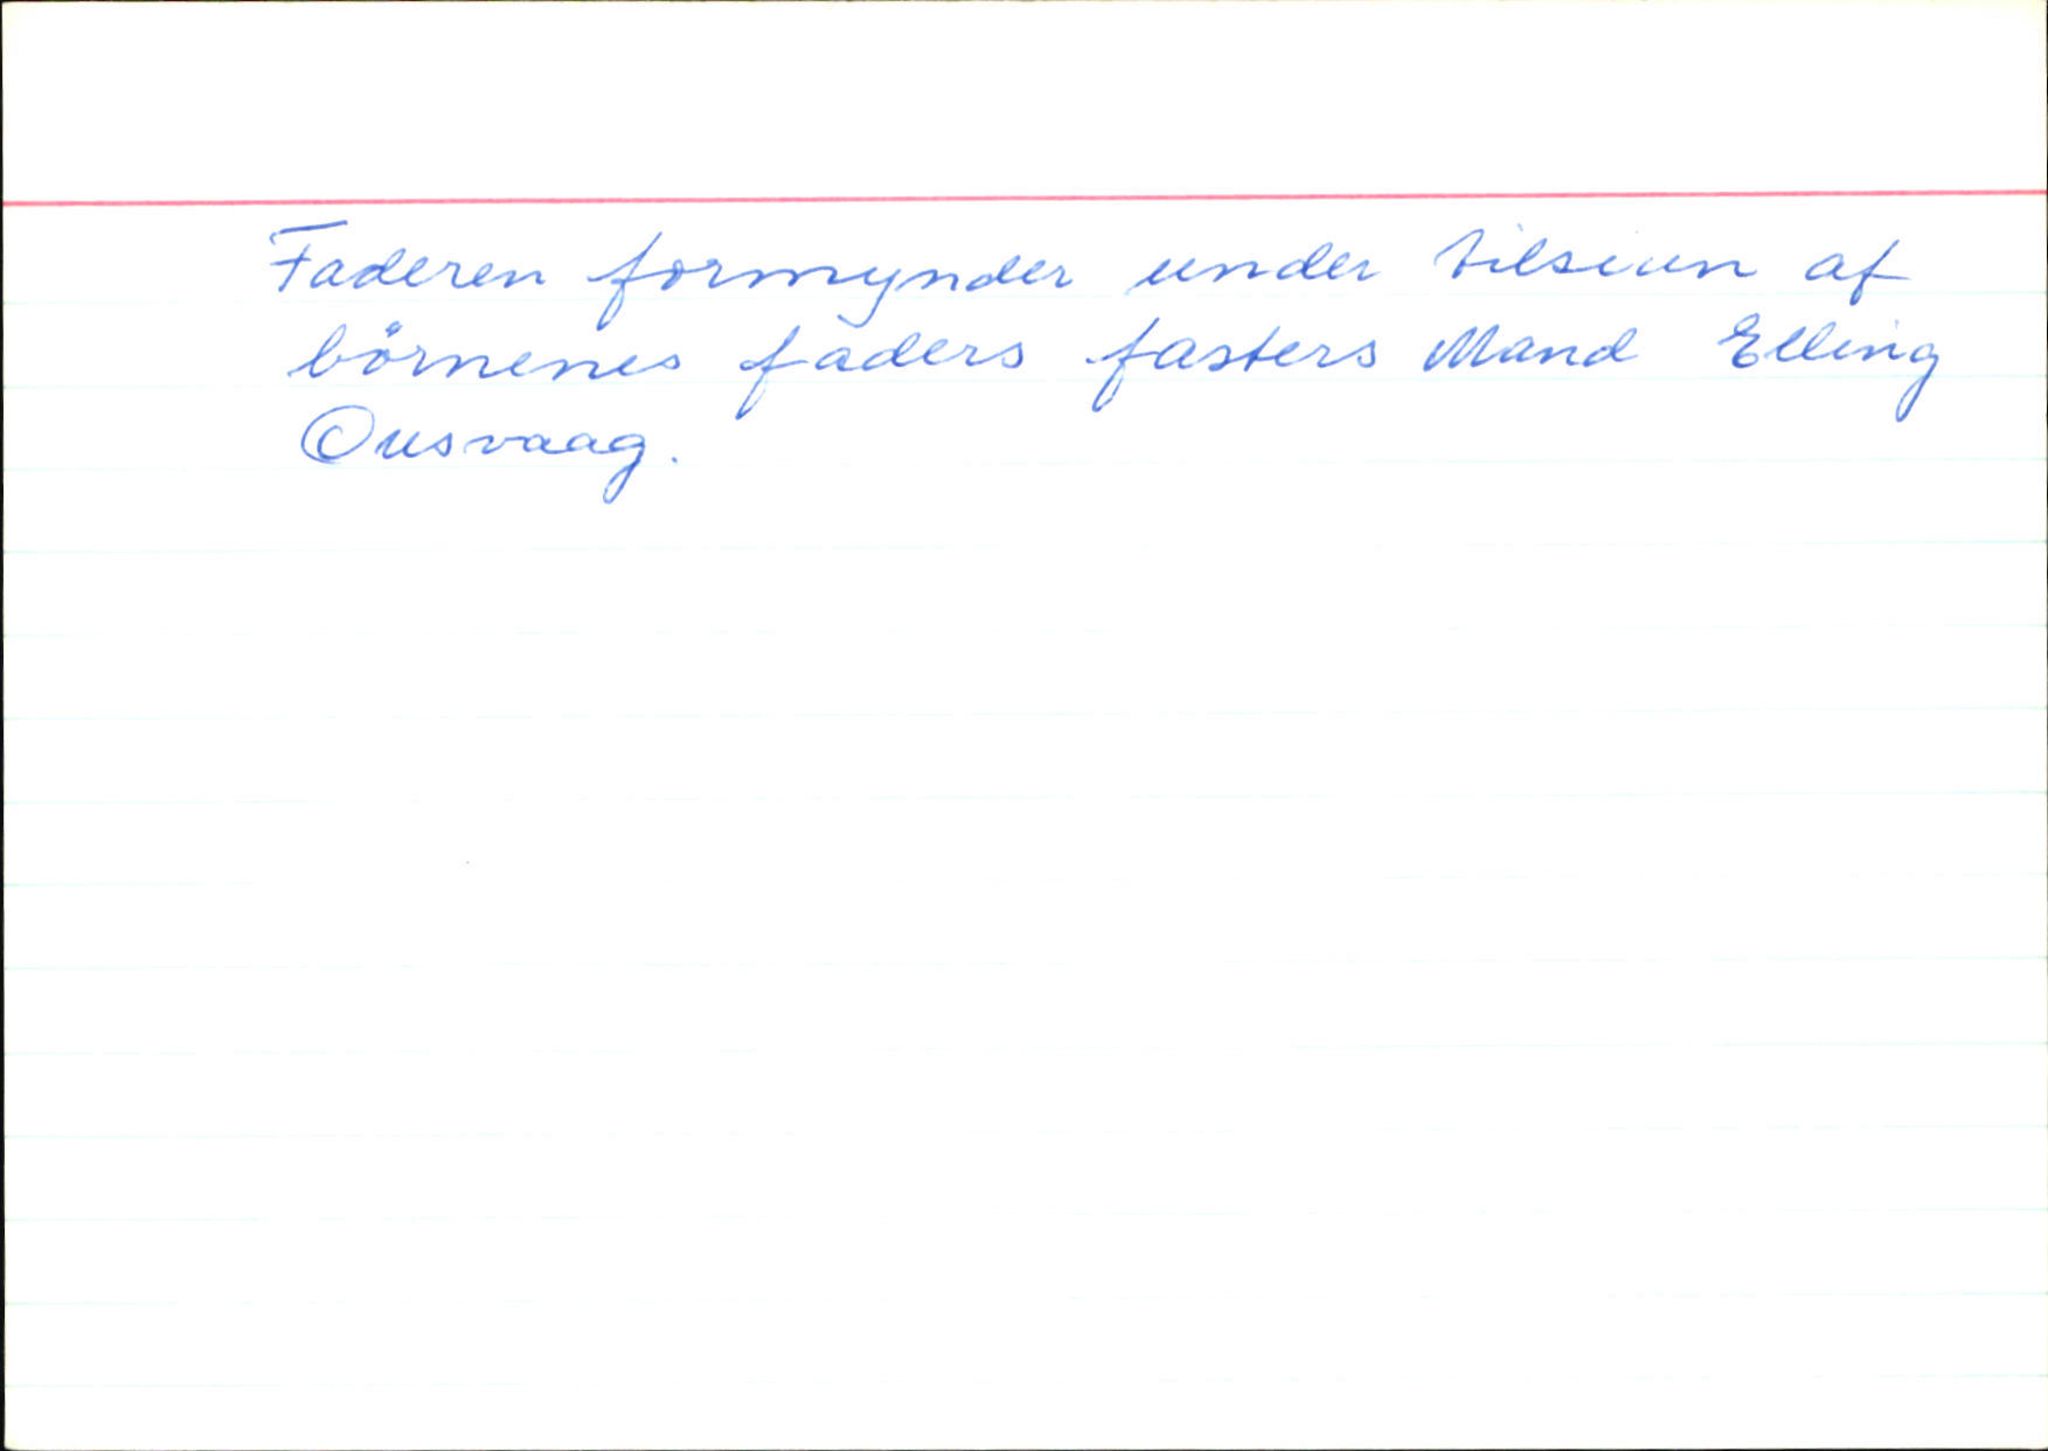 Faderen formynder under tilsiun af
börnenes faders fasters Mand Elling
Ousvaag.